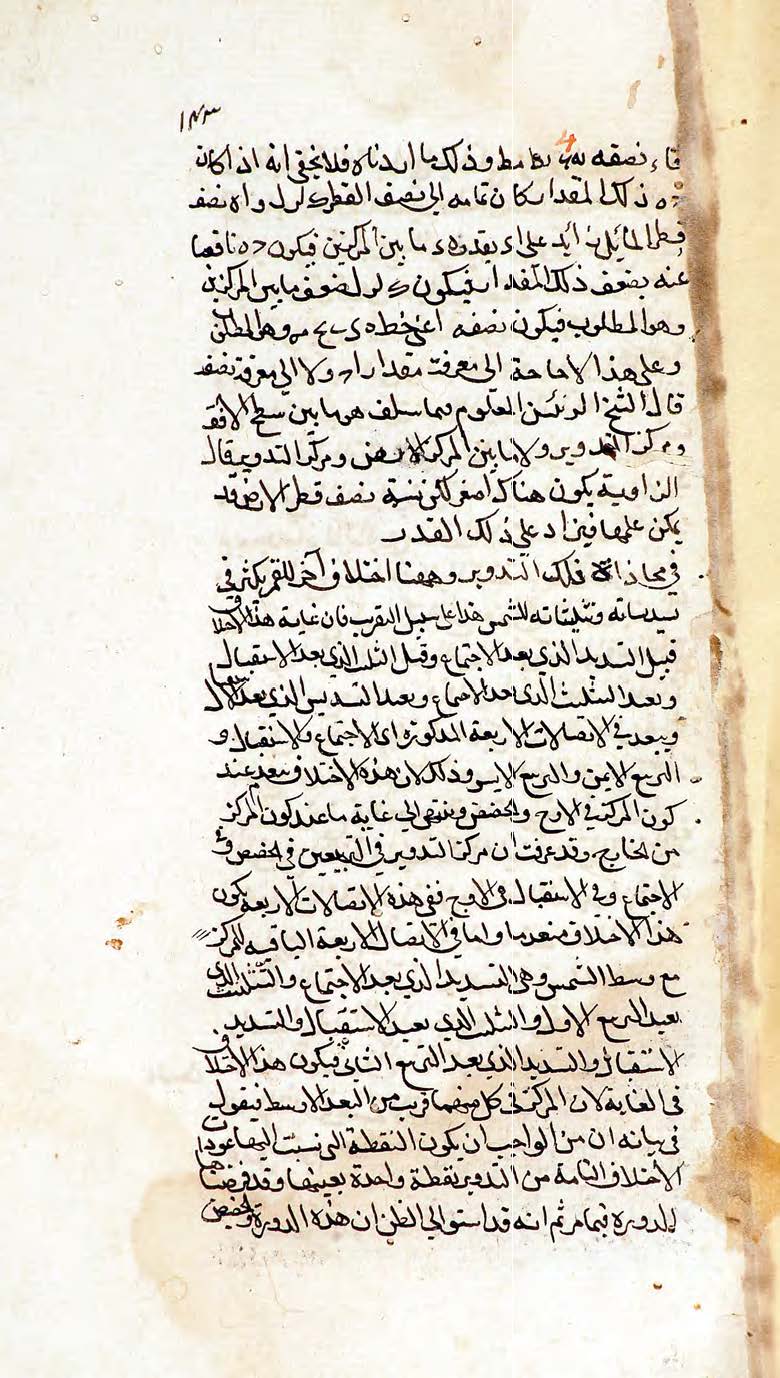 ١٤٣
قاء نصفه وذلك ما اردناه فلا يخفى انه اذا كان
ذلك المقدار كان تمامه الى نصف القطر واه نصف
قطر المايل زايد على اء بقدر ما بين المركزين فيكون ناقصا
عنه بضعف ذلك المقدار فيكون ضعف ما بين المركزين
وهو المطلوب فيكون نصفه اعنى خط وهو المطلوب
وعلى هذا لا حاجة الى معرفة مقدار ولا الى معرفة نصف
قال الشيخ الرئيس المعلوم فيما سلف هو ما بين سطح الافق
ومركز التدوير ولا ما بين المركز الارض ومركز التدوير قال
الزاوية يكون هناك اصغر لكن نسبة نصف قطر الارض قد
يمكن علمها فيزاد على ذلك القدر
في محاذاة فلك التدوير وههنا اختلاف آخر للقمر يكثر في
تسديساته وتثليثاته للشمس هذا على سبيل التقريب فان غاية هذا الاختلاف
قبيل التسديس الذي بعد الاجتماع وقبل الثلث الذي بعد الاستقبال
وبعد التثليث الذي بعد الاجتماع وبعد التسديس الذي بعد
ويبعد في الاتصالات الاربعة المذكورة اى الاجتماع والاستقبال و
التربيع الايمن والتربيع الايسر وذلك لان هذه الاختلاف ينعدم عند
كون المركز في الاوج والحضيض وينتهى الى غاية ما عند كون المركز
من الخارج وقد عرفت ان مركز التدوير في التربيعين في الحضيض وفي
الاجتماع وفى الاستقبال فى الاوج ففى هذه الاتصالات الاربعة يكون
هذا الاختلاف منعدما واما في الاتصال الاربعة الباقيه للمركز
مع وسط الشمس وهى التسديس الذي بعد الاجتماع والتثليث الذي
بعد التربيع الاول والثلث الذي بعد الاستقبال والتسديس
الاستقبال والتسديس الذي بعد التربيع الثاني فيكون هذا الاختلاف
فى الغاية لان المركز في كل منهما قريب من البعد الاوسط فيقول
في بيانه ان من الواجب ان يكون النقطة التى نسبت اليها عودات
الاختلاف التامة من التدوير نقطة واحدة بعينها وقد فرضناها
لدوره فيما مر ثم انه قد استولى الظن ان هذه الدورة والحضيض